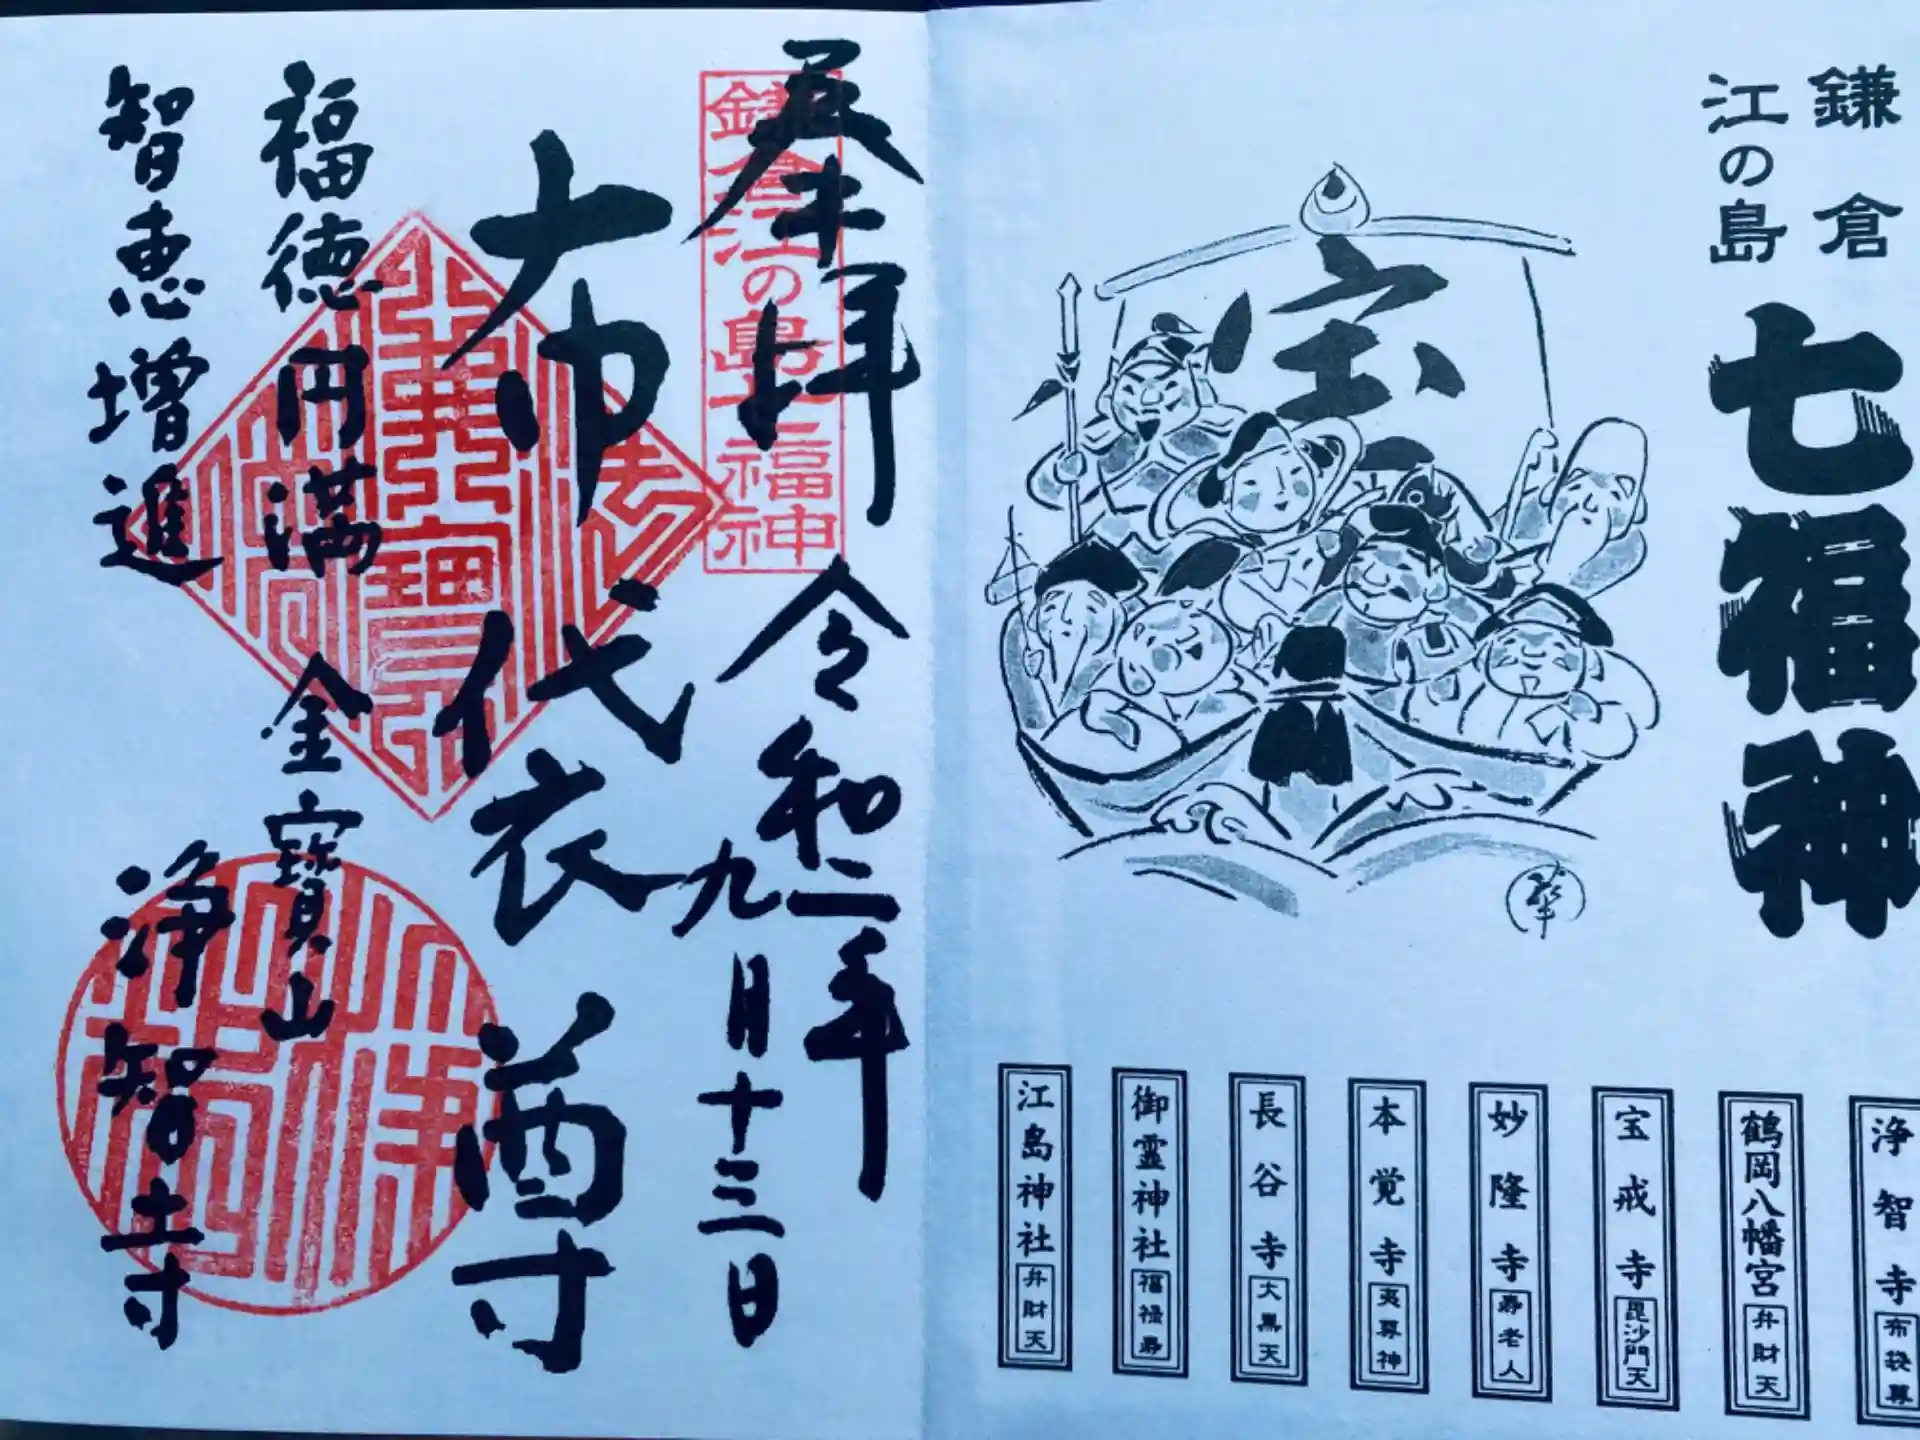 鎌倉
江の島
七福神
宝
浄智寺 布袋尊
鶴岡八幡宮 弁財天
宝戒寺 毘沙門天
妙隆寺 寿老人
本覚寺 夷尊神
長谷寺 大黒天
御霊神社 福禄寿
江島神社 弁財天
奉拝 令和二年
九月十三日
鎌倉江の島七福神
布袋尊
福徳円満 金寶山
智恵増進 浄智寺